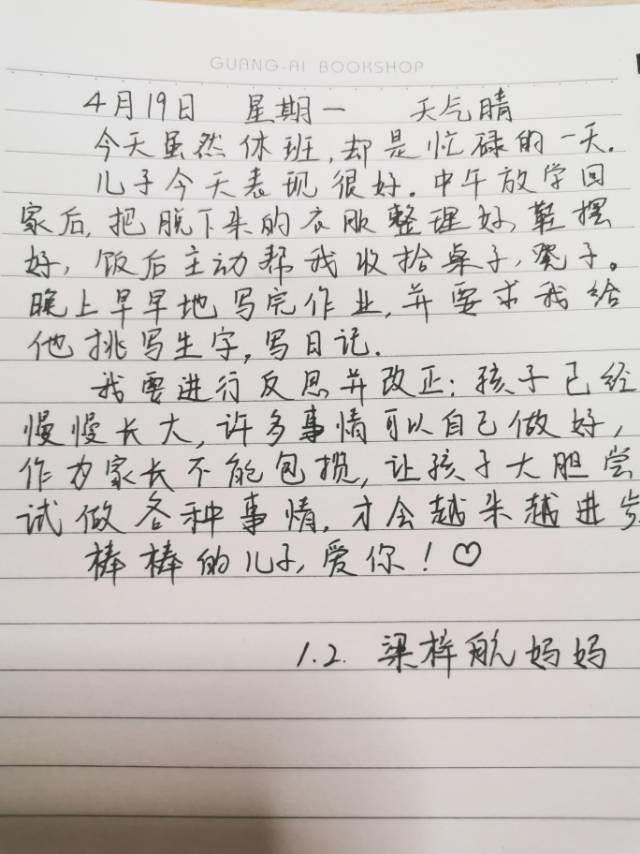 GUANG-AI BOOKSHOP
4月19日 星期一 天气晴
今天虽然休班,却是忙碌的一天.
儿子今天表现很好.中午放学回
家后,把脱下来的衣服整理好,鞋摆
好,饭后主动帮我收拾桌子,凳子。
晚上早早地写完作业,并要求我给
他挑写生字,写日记.
我要进行反思并改正:孩子已经
慢慢长大,许多事情可以自己做好,
作为家长不能包揽,让孩子大胆尝
试做各种事情,才会越来越进步
棒棒的儿子,爱你!♡
1.2. 梁梓航妈妈